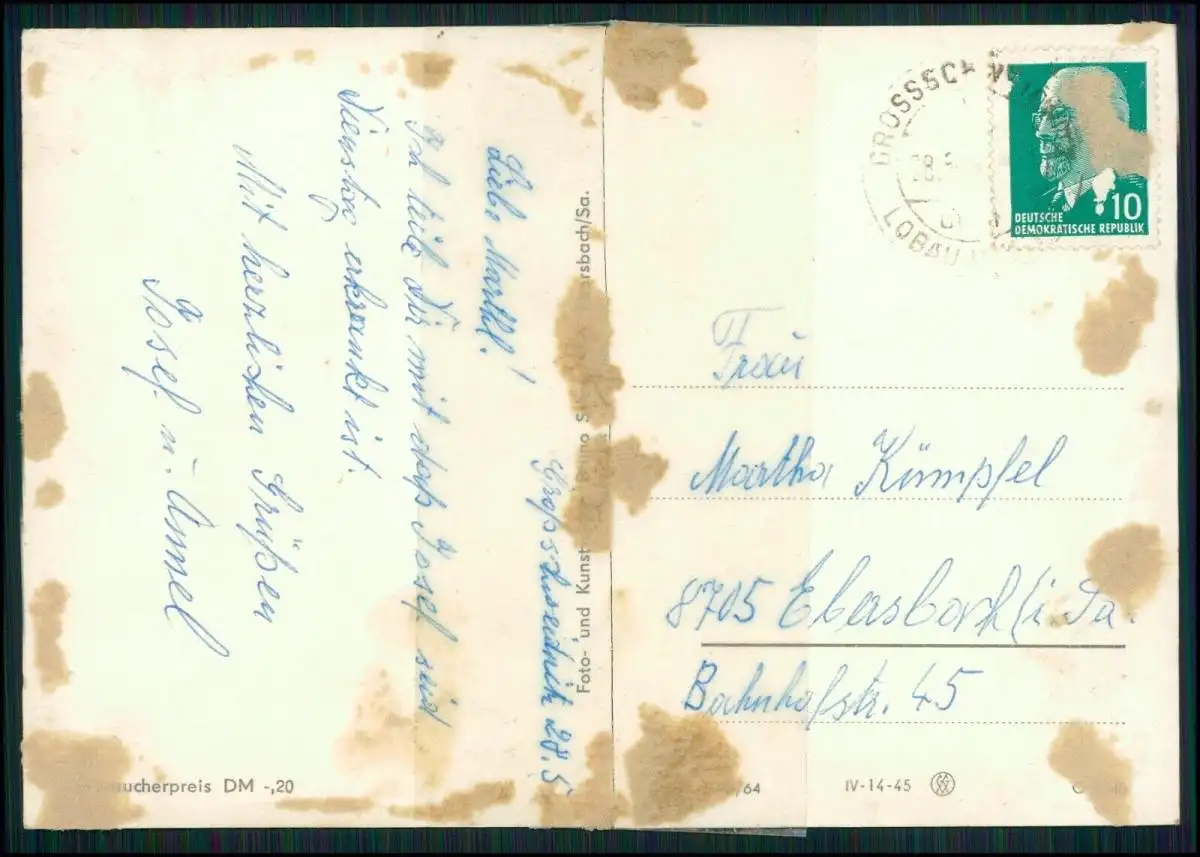 Großschweidnitz 28.5
Liebe Marthl!
Ich teile Dir mit daß Josef seid
Dienstag erkrankt ist.
Mit herzlichen Grüßen
Josef u. Annel
Foto- und Kunst Bruno S ersbach/Sa.
ucherpreis DM -,20
GROSSSCHW
28.5
LÖBAU
10
DEUTSCHE
DEMOKRATISCHE REPUBLIK
Frau
Martha Kümpfel
8705 Ebersbach/i Sa.
Bahnhofstr. 45
/64
IV-14-45